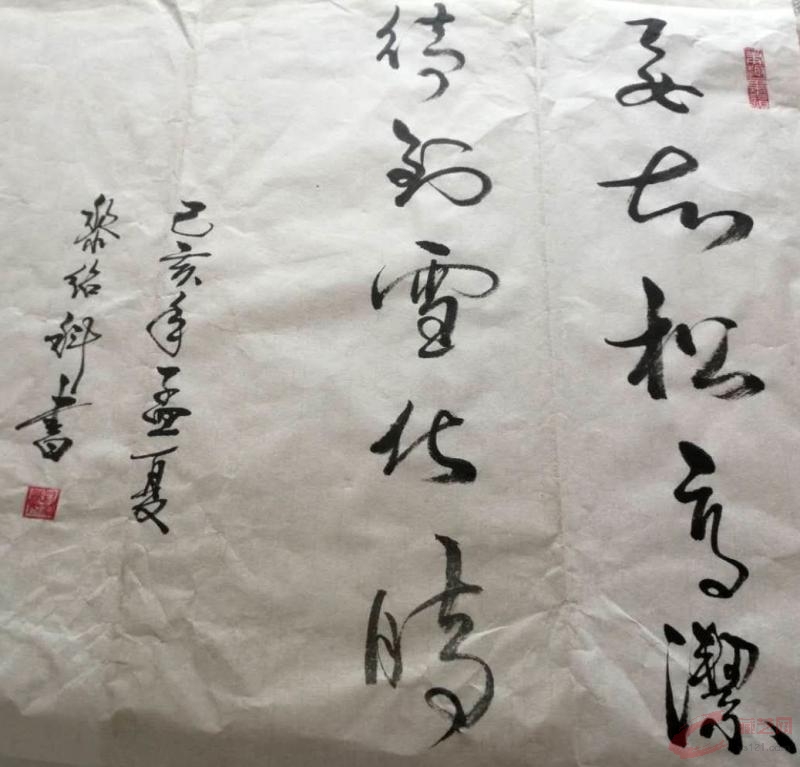 要知松高潔
待到雪化時
己亥年孟夏
黎紹科書